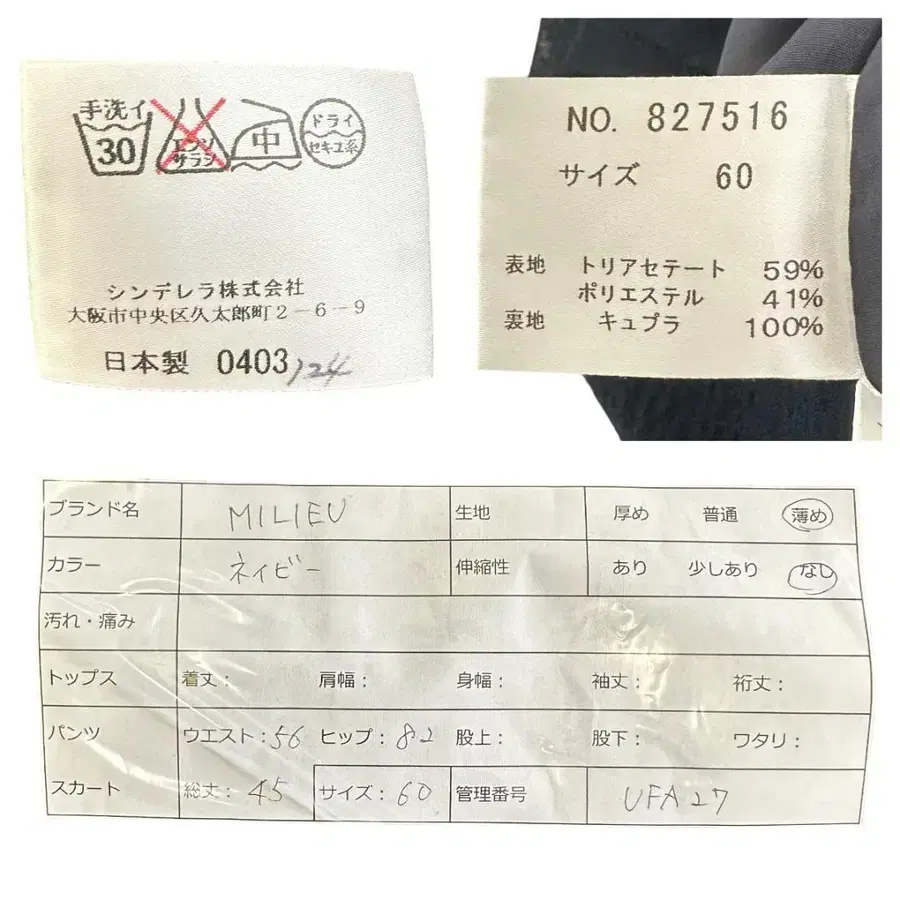 手洗イ
30
エンソ
サラシ
中
ドライ
セキユ系
シンデレラ株式会社
大阪市中央区久太郎町2-6-9
日本製 0403 124
NO. 827516
サイズ 60
表地 トリアセテート 59%
ポリエステル 41%
裏地 キュプラ 100%
ブランド名 MILIEU 生地 厚め 普通 薄め
カラー ネイビー 伸縮性 あり 少しあり なし
汚れ・痛み
トップス 着丈: 肩幅: 身幅: 袖丈: 裄丈:
パンツ ウエスト:56 ヒップ:82 股上: 股下: ワタリ:
スカート 総丈: 45 サイズ: 60 管理番号 UFA27